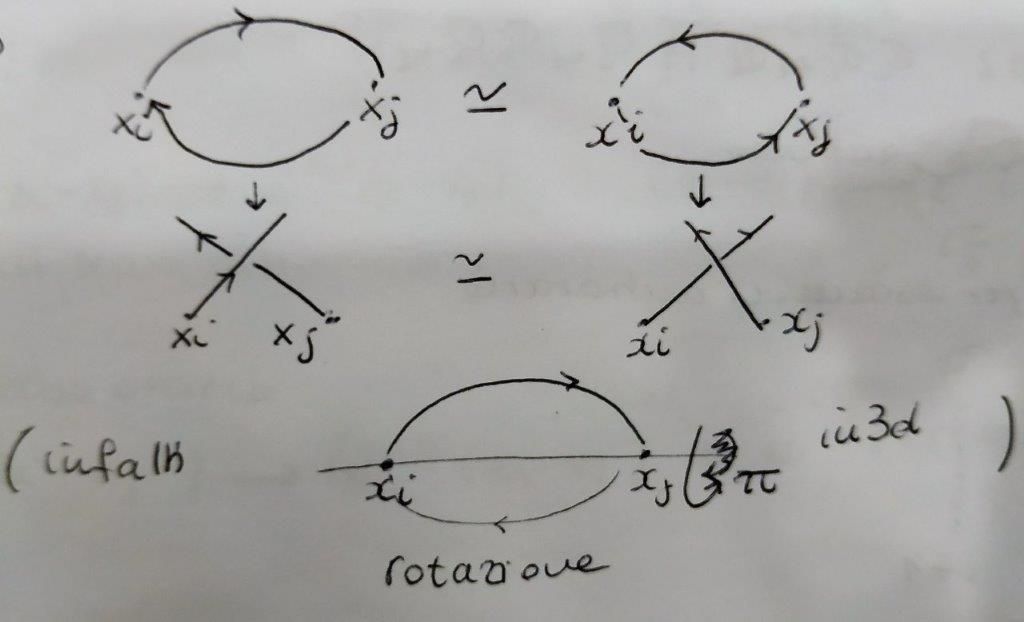 xi xj ≃ xi xj
↓ ↓
≃
xi xj xi xj
(infatti in 3d )
xi xj π
rotazione